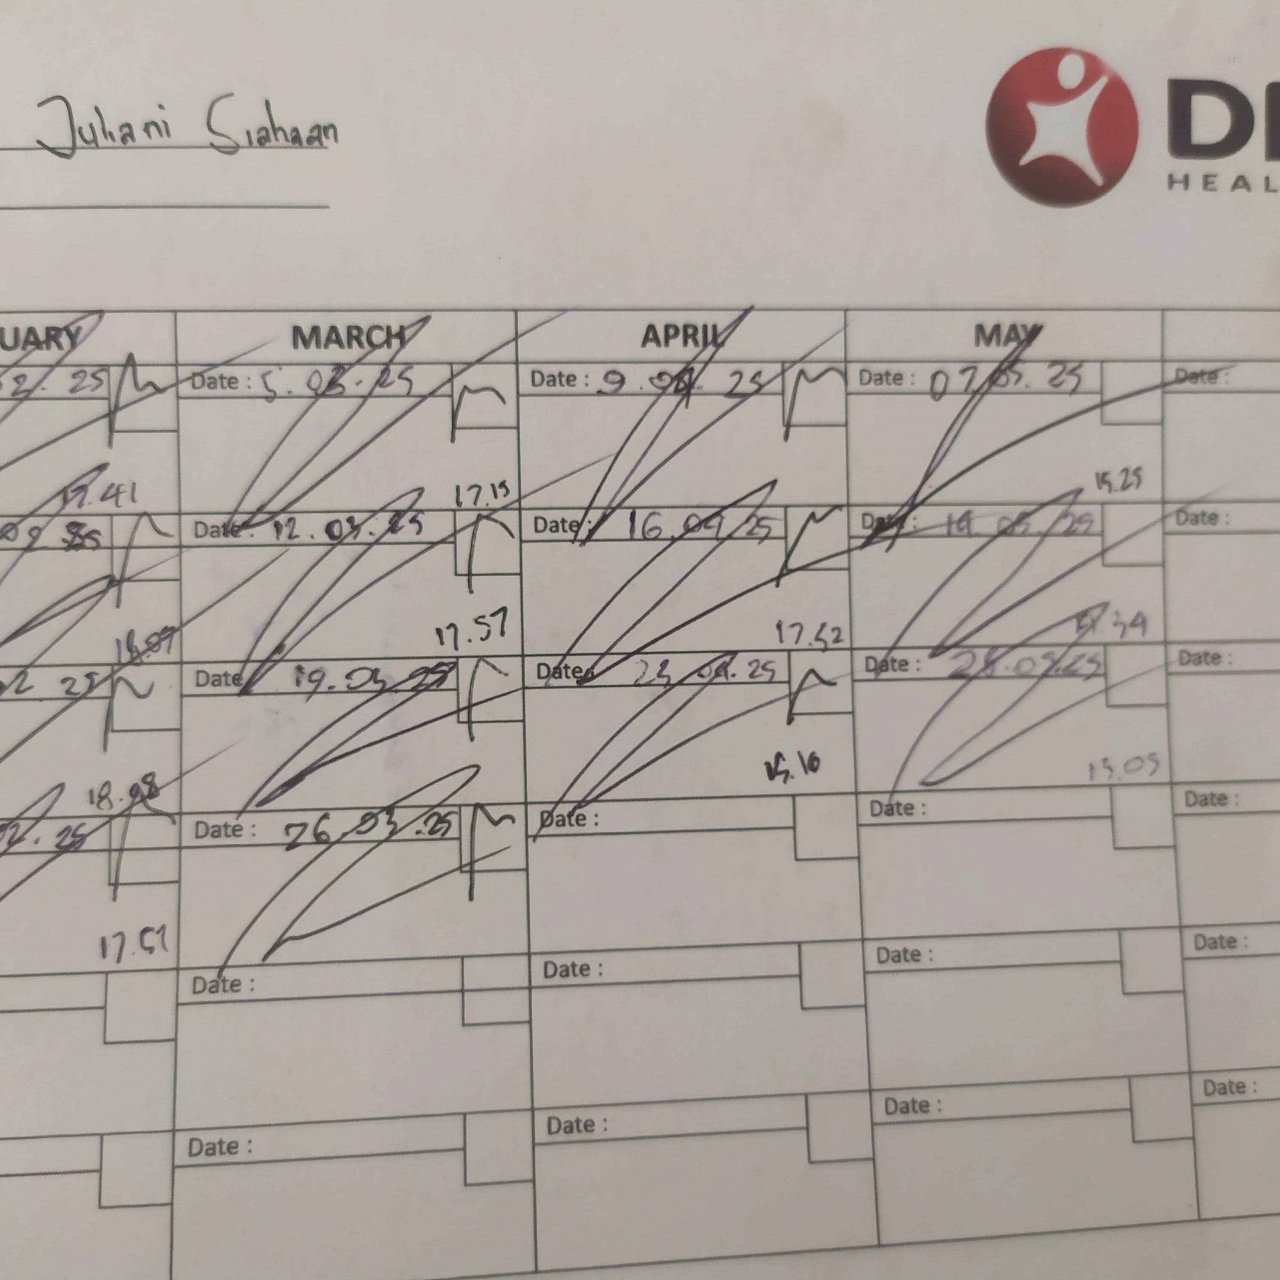 Juliani Siahaan
HEAL
UARY MARCH APRIL MAY
2. 25 Date : 5. 03. 25 Date : 9. 04. 25 Date : 07. 05. 25 Date :
17.41 17.15 15.25
Date : 12. 03. 25 Date : 16. 04. 25 Date : 14 05 25 Date :
18.07 17.57 17.52
2 25 Date : 19. 03. 25 Date : 23 04. 25 Date : 28. 05. 25 Date :
18.08 15.10 15.05
2. 25 Date : 26. 03. 25 Date : Date : Date :
17.51
Date : Date : Date : Date :
Date : Date : Date : Date :